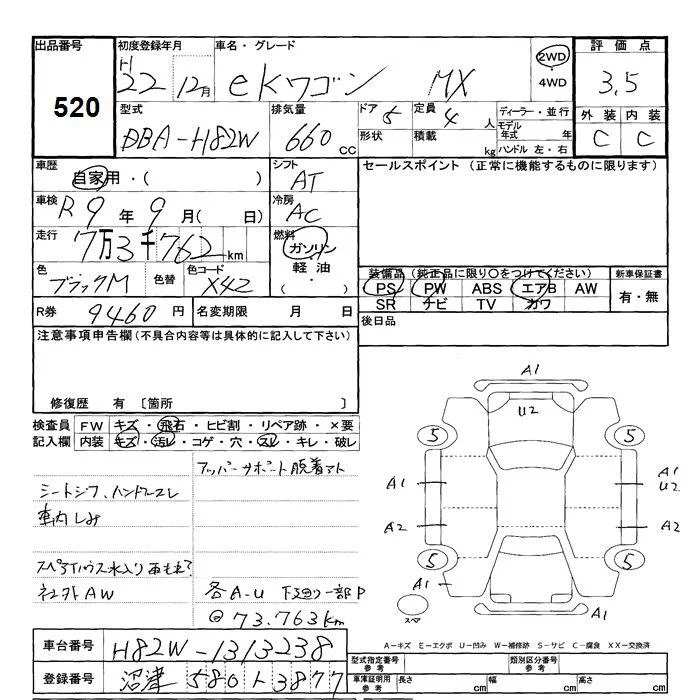 出品番号 初度登録年月 車名・グレード 評価点
520
H 22 12月 eKワゴン MX 2WD ・ 4WD 3.5
型式 排気量 ドア 5 定員 4 人 ディーラー・並行 外装 内装
DBA-H82W 660 cc 形状 積載 kg モデル年式 年 C C
ハンドル 左・右
車歴 シフト セールスポイント (正常に機能するものに限ります)
自家用・( ) AT
車検 冷房
R9年9月( 日) AC
走行 燃料
7万3千762km ガソリン
軽油
( ・ )
色 色替 色コード
ブラックM X42
装備品 (純正品に限り○をつけてください) 新車保証書
PS PW ABS エアB AW 有・無
SR ナビ TV カワ
R券 9460円 名変期限 月 日 後日品
注意事項申告欄(不具合内容等は具体的に記入して下さい)
修復歴 有 〔箇所 〕
検査員 FW キズ・飛石・ヒビ割・リペア跡・×要
記入欄 内装 キズ・汚レ・コゲ・穴・スレ・キレ・破レ
アッパーサポート脱着アト
シートシワ、ハンドルスレ
車内しみ
スペアハウス水入り
社外AW
各A-U 下回り一部P
@73.763km
A1
U2
5 5
A1 A1
U2
A2 A2
5 5
A1 A1
スペア
A1
A-キズ E-エクボ U-凹み W-補修跡 S-サビ C-腐食 XX-交換済
車台番号 H82W-1313238
登録番号 沼津 580 ト 3877
型式指定番号 参考 類別区分番号 参考
車庫証明用 参考 長さ cm 幅 cm 高さ cm